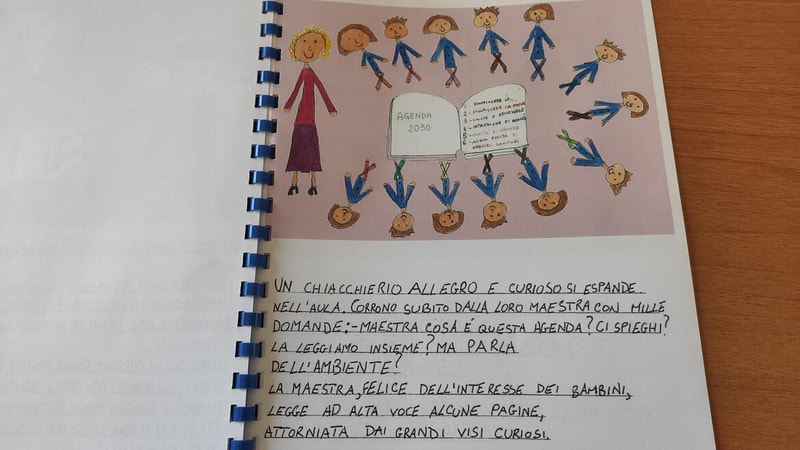 AGENDA
2030
1 - SCONFIGGERE LA
2 - SCONFIGGERE LA FAME
3 - SALUTE E BENESSERE
4 - ISTRUZIONE DI QUALITÀ
5 - PARITÀ DI GENERE
6 - ACQUA PULITA E
SERVIZI SANITARI
UN CHIACCHIERIO ALLEGRO E CURIOSO SI ESPANDE
NELL'AULA. CORRONO SUBITO DALLA LORO MAESTRA CON MILLE
DOMANDE:-MAESTRA COSÁ É QUESTA AGENDA? CI SPIEGHI?
LA LEGGIAMO INSIEME? MA PARLA
DELL'AMBIENTE?
LA MAESTRA, FELICE DELL'INTERESSE DEI BAMBINI,
LEGGE AD ALTA VOCE ALCUNE PAGINE,
ATTORNIATA DAI GRANDI VISI CURIOSI.